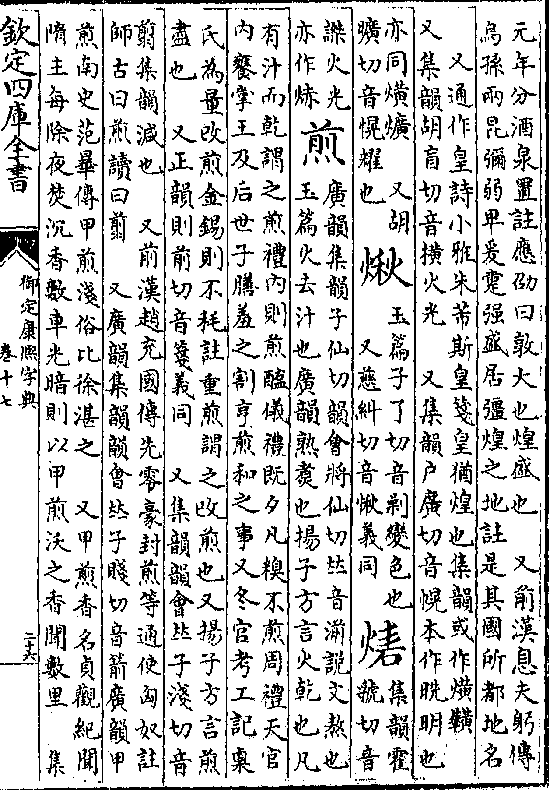 元年分酒泉置註應劭曰敦大也煌盛也　又前漢息夫躬傳
烏孫兩昆彌弱卑爰疐强盛居彊煌之地註是其國所都地名
又通作皇詩小雅朱芾斯皇箋皇猶煌也集韻或作熿䵃
又集韻胡盲切音橫火光　又集韻户廣切音愰本作晄明也
亦同熿爌　又胡
曠切音愰耀也
煍
玉篇子了切音剿變色也
又慈糾切音愀義同
集韻霍
虢切音
謋火光
亦作焃
煎
廣韻集韻子仙切韻會將仙切𠀤音湔說文熬也
玉篇火去汁也廣韻熟煑也揚子方言火乾也凡
有汁而乾謂之煎禮內則煎醢儀禮既夕凡糗不煎周禮天官
內饔掌王及后世子膳羞之割亨煎和之事又冬官考工記㮚
氏為量改煎金錫則不耗註重煎謂之改煎也又揚子方言煎
盡也　又正韻則前切音箋義同　又集韻韻會𠀤子淺切音
翦集韻減也　又前漢趙充國傳先零豪封煎等通使匈奴註
師古曰煎讀曰翦　又廣韻集韻韻會𠀤子賤切音箭廣韻甲
煎南史范曄傳甲煎淺俗比徐湛之　又甲煎香名貞觀紀聞
隋主每除夜焚沉香數車光暗則以甲煎沃之香聞數里　集
欽定四庫全書
御定康熙字典
卷十七
二十六